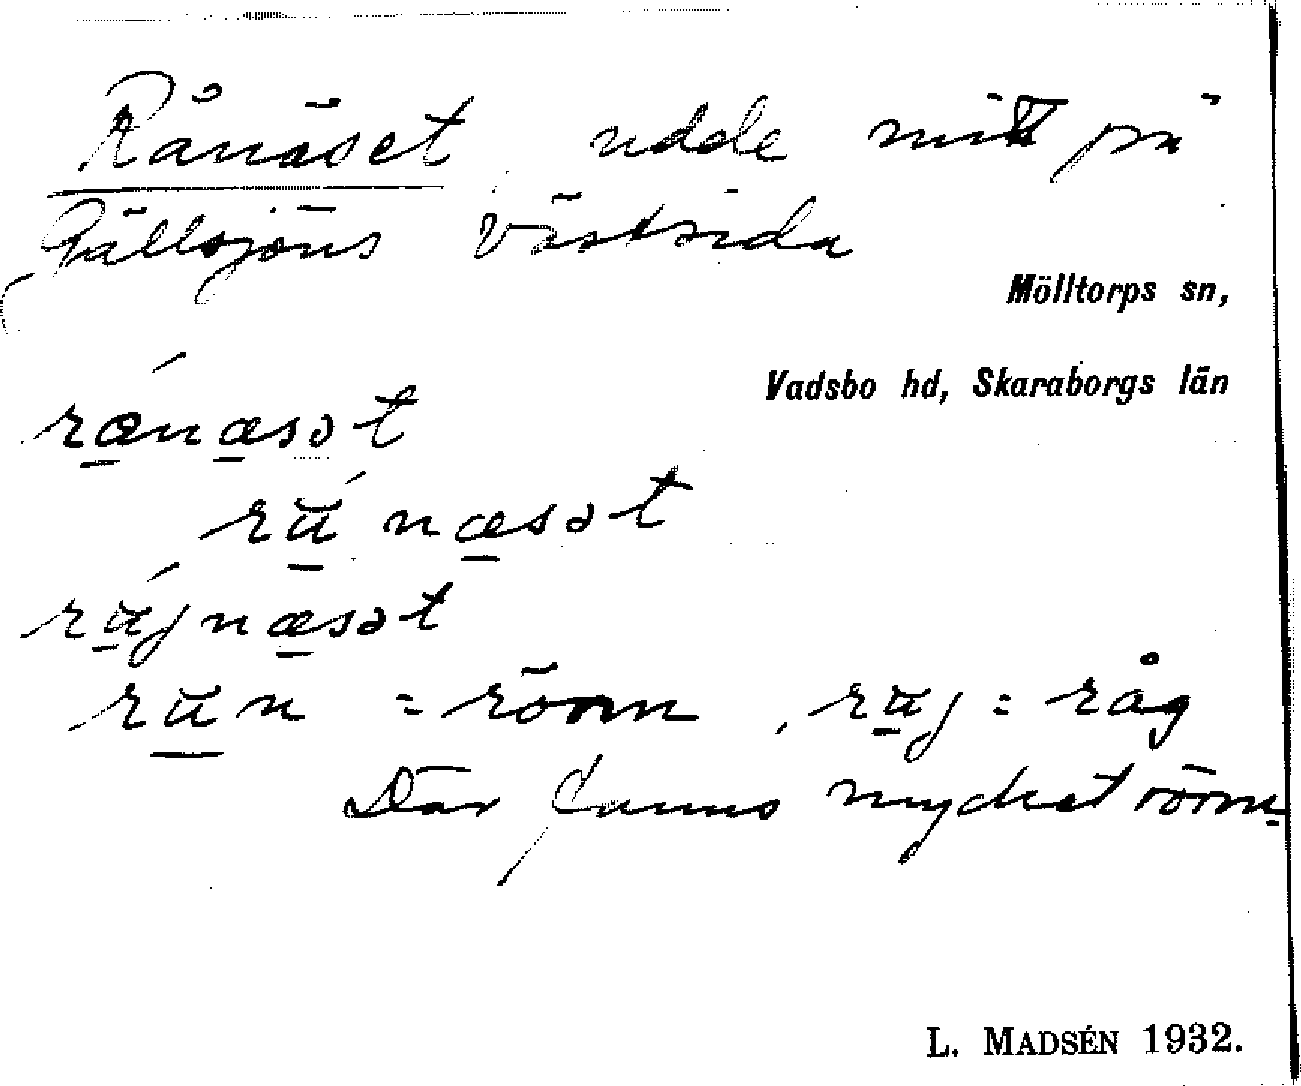 Rånäset, udde mitt på
Gällsjöns västsida
Mölltorps sn,
Vadsbo hd, Skaraborgs län
rǽnæsət
rú næsət
rújnæsət
run = rönn, ruj = råg
Där fanns mycket rönn
L. MADSÉN 1932.